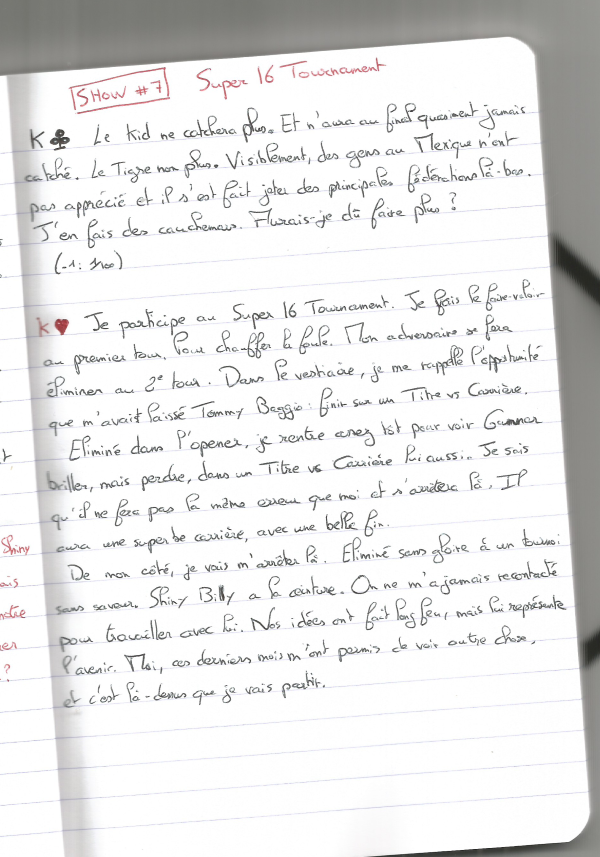 SHOW #7 Super 16 Tournament
K♣ Le Kid ne catchera plus. Et n'aura au final quasiment jamais
catché. Le Tigre non plus. Visiblement, des gens au Mexique n'ont
pas apprécié et il s'est fait jeter des principales fédérations là-bas.
J'en fais des cauchemars. Aurais-je dû faire plus ?
(-1:
K♥ Je participe au Super 16 Tournament. Je fais le faire-valoir
au premier tour. Pour chauffer la foule. Mon adversaire se fera
éliminer au 2e tour. Dans le vestiaire, je me rappelle l'opportunité
que m'avait laissé Tommy Baggio : finir sur un Titre vs Carrière.
Eliminé dans l'opener, je rentre assez tôt pour voir Gunnar
briller, mais perdre, dans un Titre vs Carrière lui aussi.. Je sais
qu'il ne fera pas la même erreur que moi et s'arrêtera là. Il
aura une superbe carrière, avec une belle fin.
De mon côté, je vais m'arrêter là. Eliminé sans gloire à un tournoi
sans saveur. Shiny Billy a la ceinture. On ne m'a jamais recontacté
pour travailler avec lui. Nos idées ont fait long feu, mais lui représente
l'avenir. Moi, ces derniers mois m'ont permis de voir autre chose,
et c'est là-dessus que je vais partir.
Shiny
ais
er
?